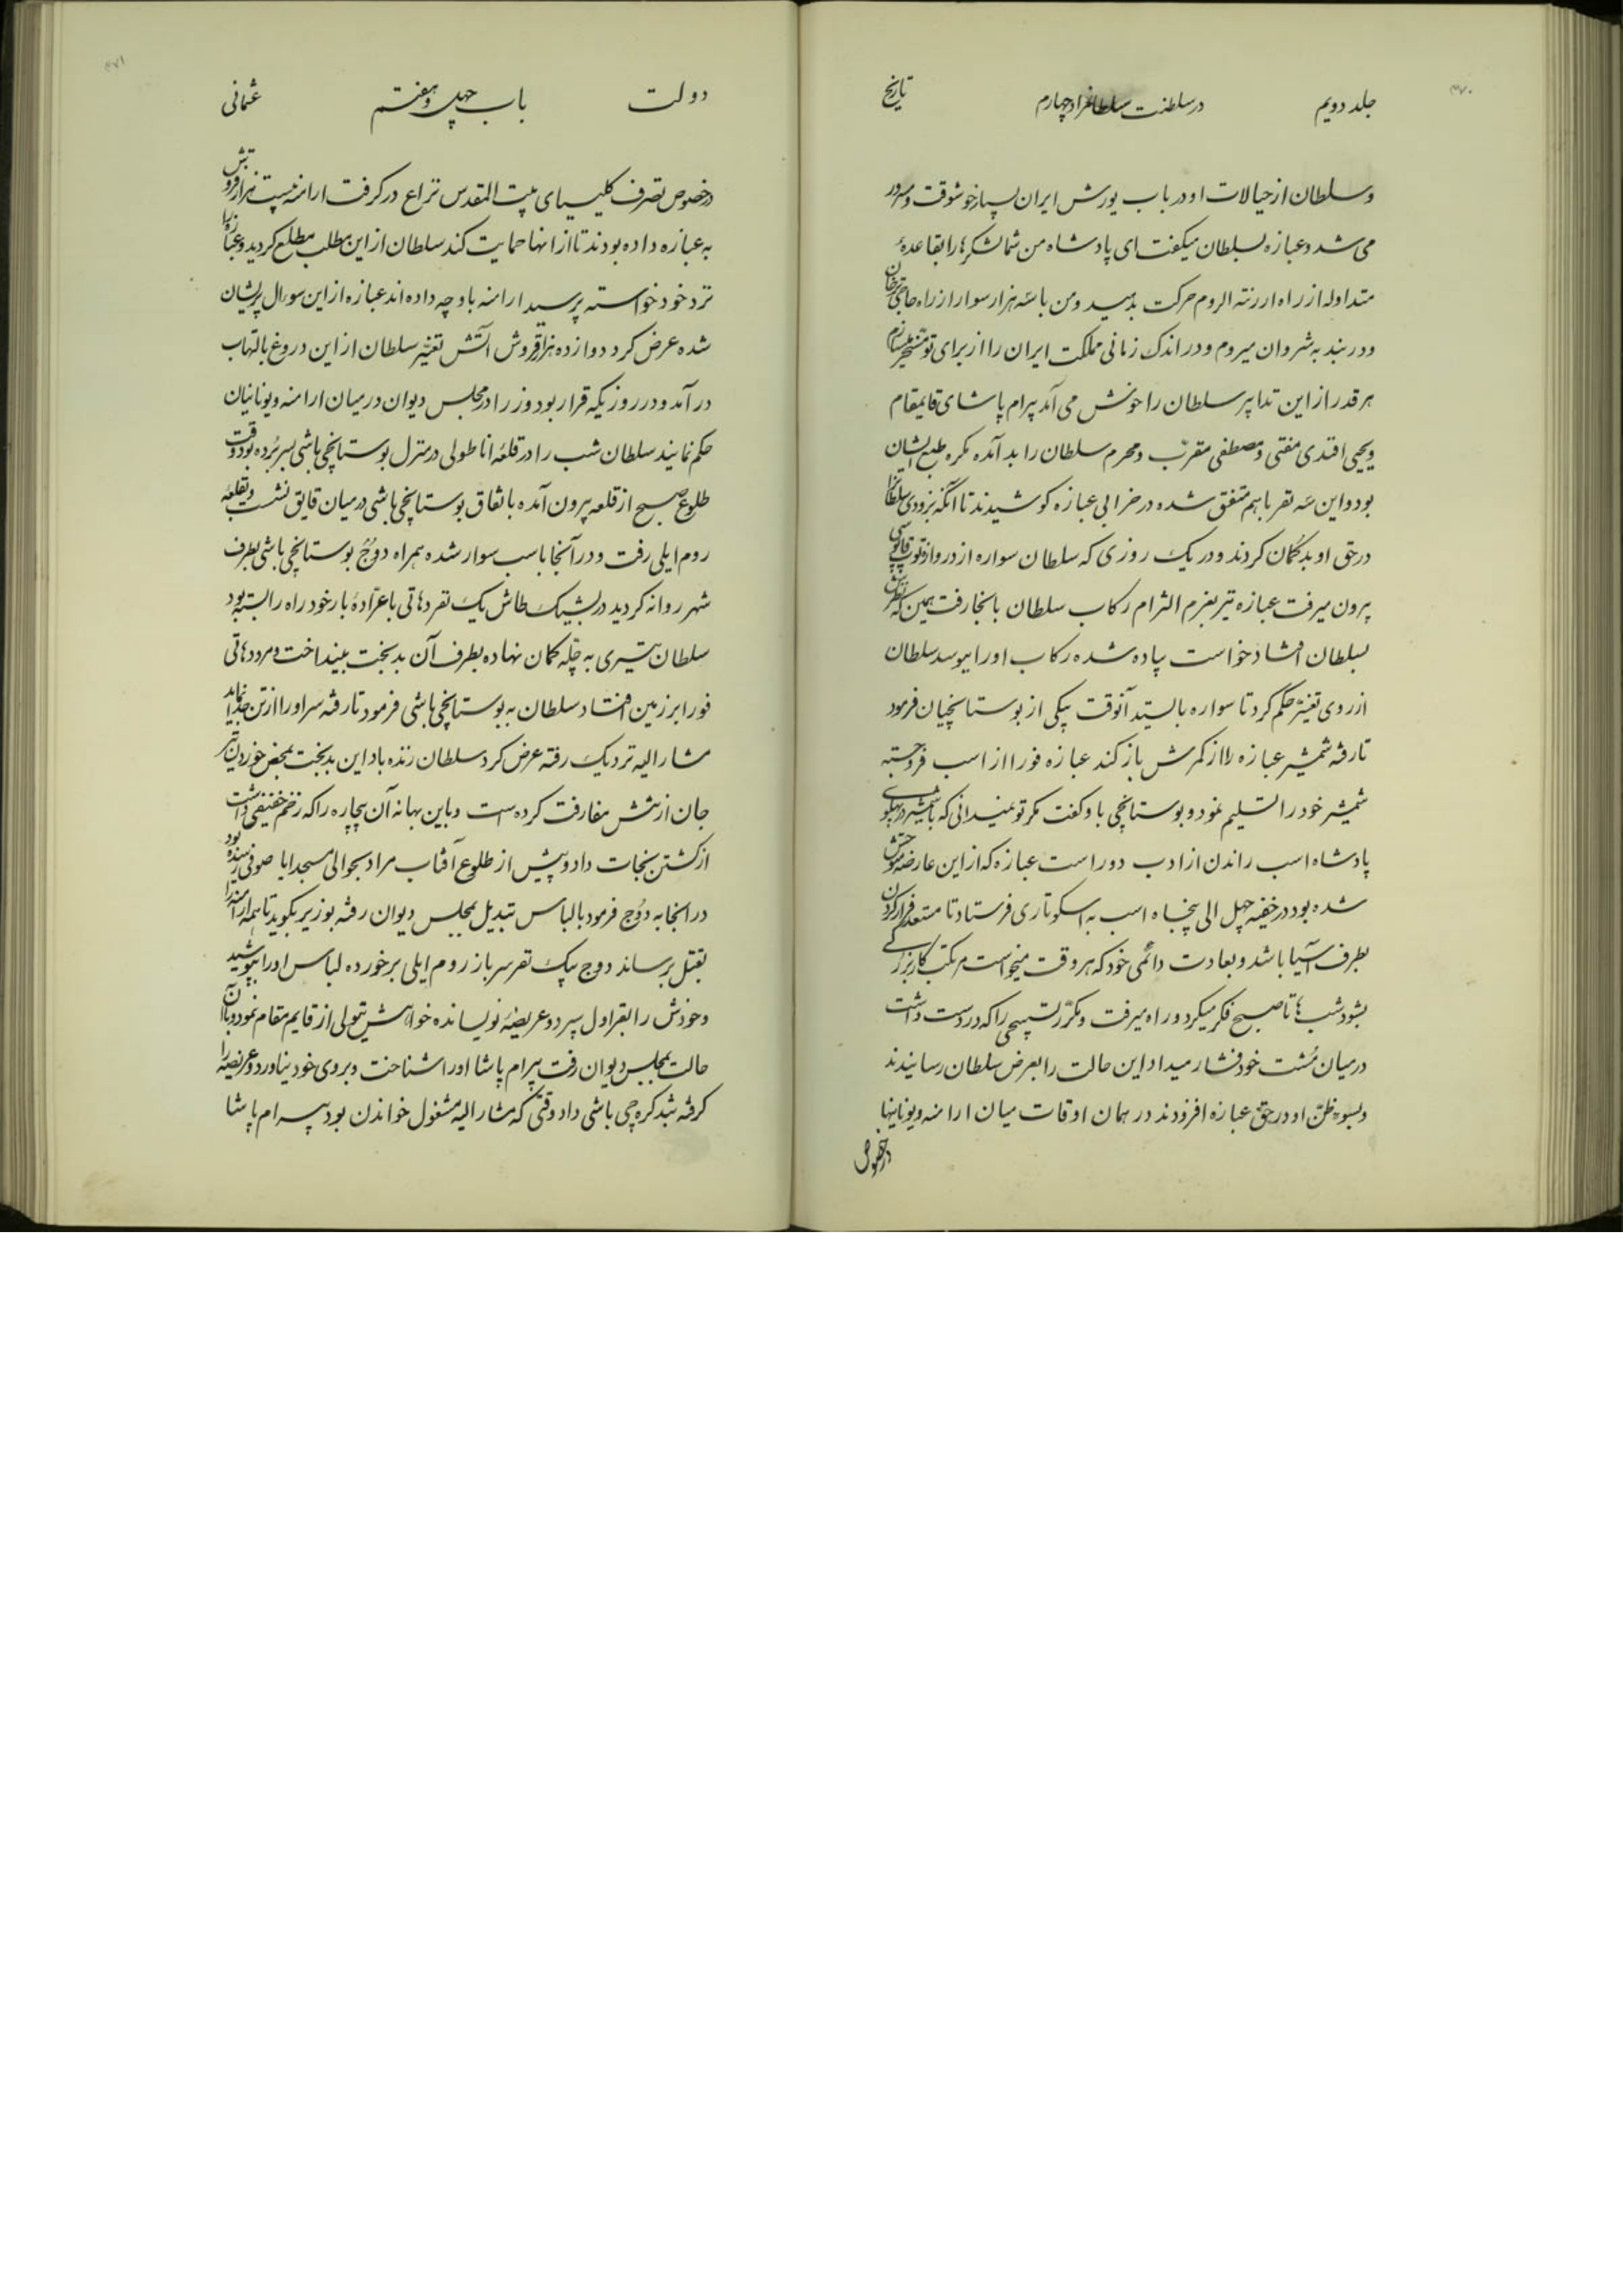 ۳۷۰
جلد دویم در سلطنت سلطانمراد چهارم تاریخ
و سلطان از خیالات او در باب یورش ایران بسیار خوشوقت و مسرور
می شد و عبازه بسلطان میگفت ای پادشاه من شما لشکرها را بقاعدهٔ
متداوله از راه ارزنته الروم حرکت بدهید و من با سه هزار سوار از راه حاجی ترخان
و دربند به شروان میروم و در اندک زمانی مملکت ایران را از برای تو مسخر میسازم
هر قدر از این تدابیر سلطان را خوش می آمد بیرام پاشای قایمقام
و یحیی افندی مفتی و مصطفی مقرّب و محرم سلطان را بد آمده مکره طبع ایشان
بود و این سه نفر باهم متفق شده در خرابی عبازه کوشیدند تا آنکه بزودی سلطانرا
در حق او بد گمان کردند و در یک روزی که سلطان سواره از دروازه توپ قاپوسی
بیرون میرفت عبازه نیز بعزم التزام رکاب سلطان بانجا رفت همین که نظرش
بسلطان افتاد خواست پیاده شده رکاب او را ببوسد سلطان
از روی تغیّر حکم کرد تا سواره بایستد آنوقت بیکی از بوستانچیان فرمود
تا رفته شمشیر عبازه را از کمرش باز کند عبازه فورا از اسب فرو جسته
شمشیر خود را تسلیم نمود و بوستانچی باو گفت مگر تو نمیدانی که با شمشیر در پهلوی
پادشاه اسب راندن از ادب دور است عبازه که از این عارضه متوحش
شده بود در خفیه چهل الی پنجاه اسب به اسکوتاری فرستاد تا مستعد فرار کردن
بطرف آسیا باشد و بعادت دائمی خود که هر وقت میخواست مرتکب کار بزرگی
بشود شب ها تا صبح فکر میکرد و راه میرفت و مکرّر تسبیحی را که در دست داشت
در میان مُشت خود فشار میداد این حالت را بعرض سلطان رسانیدند
و بسوء ظنّ او در حقّ عبازه افزودند در همان اوقات میان ارامنه و یونانیها
در خصوص
۳۷۱
دولت باب چهل و هفتم عثمانی
در خصوص تصرف کلیسیای بیت المقدس نزاع در گرفت ارامنه بیست هزار قروش
به عبازه داده بودند تا از انها حمایت کند سلطان از این مطلب مطلع گردید و عبازه را
نزد خود خواسته پرسید ارامنه باو چه داده اند عبازه از این سوال پریشان
شده عرض کرد دوازده هزار قروش آتش تغیّر سلطان از این دروغ بالتهاب
در آمد و در روزیکه قرار بود وزرا در مجلس دیوان در میان ارامنه و یونانیان
حکم نمایند سلطان شب را در قلعه اناطولی در منزل بوستانچی باشی بسر برده بود وقت
طلوع صبح از قلعه بیرون آمده باتفاق بوستانچی باشی در میان قایق نشست و بقلعه
روم ایلی رفت و در آنجا باسب سوار شده همراه دوج بوستانچی باشی بطرف
شهر روانه گردید در بشیک طاش یک نفر دهاتی با عرّادهٔ بار خود راه را بسته بود
سلطان تیری به چلّه کمان نهاده بطرف آن بدبخت بینداخت و مرد دهاتی
فورا بر زمین افتاد سلطان به بوستانچی باشی فرمود تا رفته سر او را از تن جدا نماید
مشارالیه نزدیک رفته عرض کرد سلطان زنده باد این بدبخت بمحض خوردن تیر
جان از تنش مفارقت کرده است و باین بهانه آن بیچاره را که زخم خفیفی داشت
از کشتن نجات داد و پیش از طلوع آفتاب مراد بحوالی مسجد ایا صوفی رسیده بود
در انجا به دوج فرمود با لباس تبدیل بمجلس دیوان رفته بوزیر بگوید تا همه ارامنه را
بقتل برساند دوج بیک نفر سرباز روم ایلی برخورده لباس او را بپوشید
و خودش را بقراول سپرد و عریضهٔ نویسانده خواهش تیولی از قایم مقام نمود و با آن
حالت بمجلس دیوان رفت بیرام پاشا او را شناخت و بروی خود نیاورد و عریضه را
گرفته بتذکره چی باشی داد وقتی که مشارالیه مشغول خواندن بود بیرام پاشا